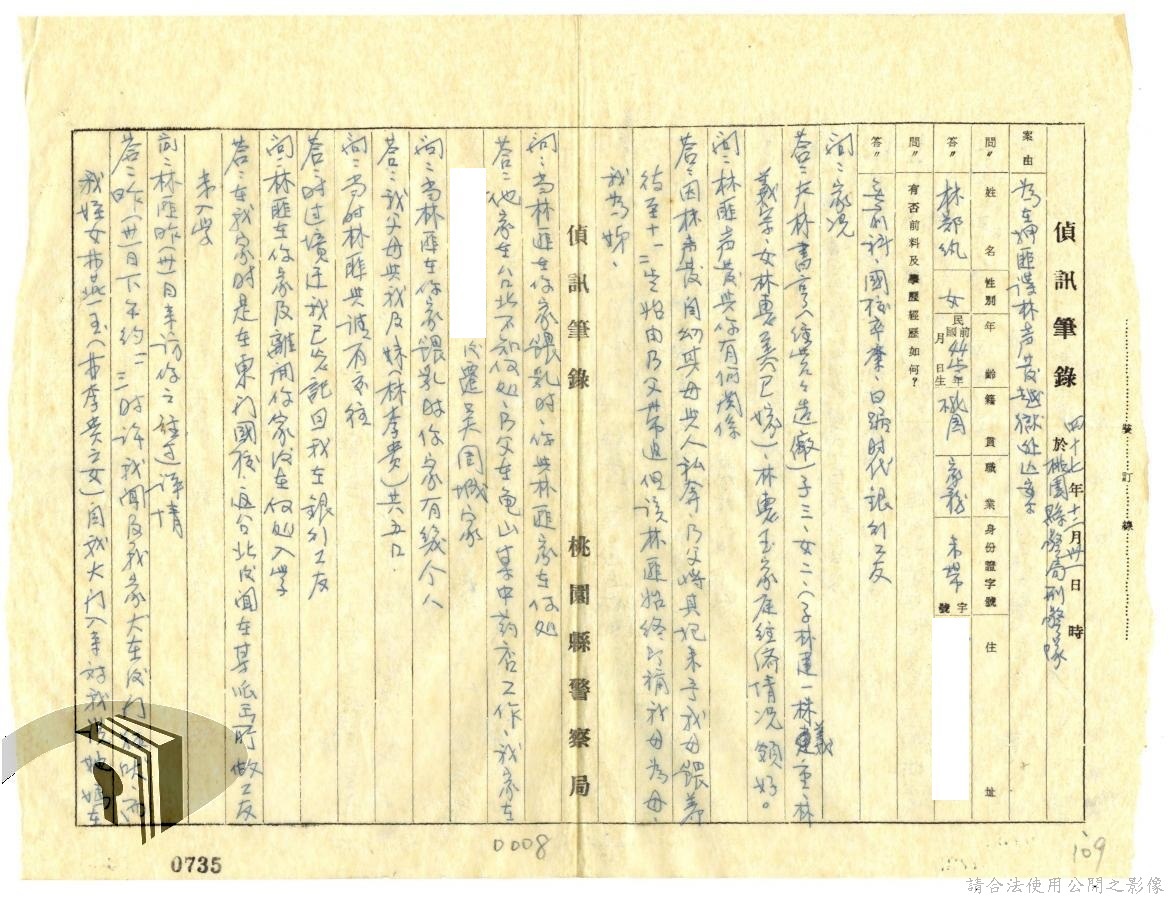 偵訊筆錄 四十七年十二月卅一日 時
於桃園縣警局刑警隊
案由 為在 匪諜林声发越獄 案
問〃 姓名 性別 年齡 籍貫 職業 身份證字號 住址
答〃 林鄒 女 民國前 年 月 日生 桃園 家務 未帶 字 號
問〃 有否前料及學歷經歷如何?
答〃 無前科、國校卒業、日據时代銀行工友
問:家況
答:夫林書 子三、女二、(子林建一林 重林
義 、女林惠美已嫁)、林惠玉家庭經濟情况頗好。
問:林匪声发與你有何関係
答:因林声发自幼其母與人私奔乃父將其 来予我母餵養
待至十一二 始由乃父帶返但該林匪始終 稱我母為母、
我為姊、
偵訊筆錄 桃園縣警察局
問:當林匪在你家餵乳时、你與林匪家在何处
答:他家在台北不知何处、乃父在龟山某中药店工作、我家在
後遷吴 城家
問:當林匪在你家餵乳时你家有幾个人
答:我父母與我及妹(林李貴)共五口
問:當时林匪與誰有來往
答:时过境迁我已忘記因我在銀行工友
問:林匪在你家及離開你家後在何处入学
答:在我家时是在東门國校、返台北後聞在某派出所做工友、
未入学
問:林匪昨卅日来訪你之經过詳情
答:昨(卅)日下午約二三时許我聞及我家犬在後门 吠、而
我姪女 燕玉( 李貴之女)自我大门入来对我說她 在
0735
0008
109
裝訂線
請合法使用公開之影像